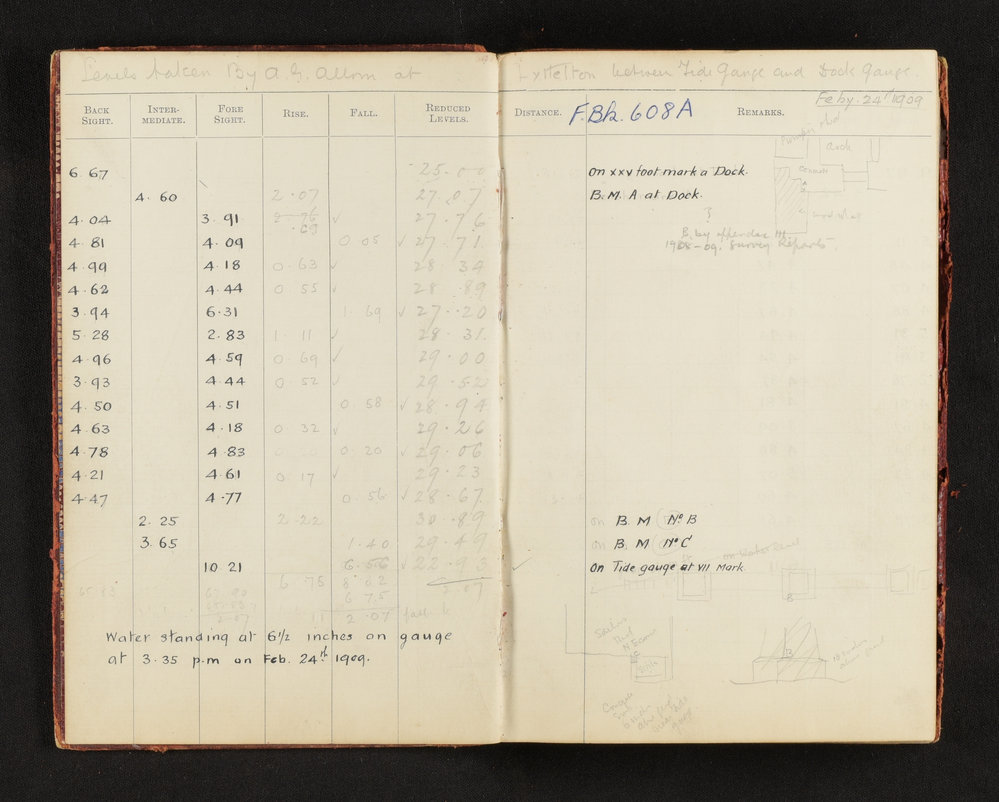 Levels taken By A. G. Allom at Lyttelton between Tide Gauge and Dock Gauge.
Feby. 24th 1909
BACK SIGHT. INTER-MEDIATE. FORE SIGHT. RISE. FALL. REDUCED LEVELS. DISTANCE. F.Bk. 608A REMARKS.
6.67 25.00 on xxv foot mark a Dock.
4.60 2.07 27.07 B.M. A at Dock.
4.04 3.91 2.76 ✓ 27.76
.69
4.81 4.09 0.05 ✓ 27.71
B. by appendix III
1908-09. Survey Reports.
4.99 4.18 0.63 ✓ 28.34
4.62 4.44 0.55 ✓ 28.89
3.94 6.31 1.69 ✓ 27.20
5.28 2.83 1.11 ✓ 28.31
4.96 4.59 0.69 ✓ 29.00
3.93 4.44 0.52 ✓ 29.52
4.50 4.51 0.58 ✓ 28.94
4.63 4.18 0.32 ✓ 29.26
4.78 4.83 0.20 ✓ 29.06
4.21 4.61 0.17 ✓ 29.23
4.47 4.77 0.56 ✓ 28.67
2.25 2.22 30.89 on B.M No B
3.65 1.40 29.49 on B.M No C
10 21 6.56 ✓ 22.93 ✓ on Tide gauge at VII Mark.
65.83 6.75 8.82 2.07
67.90 6.75
65.83
2.07 11 2.07 fall
Water standing at 6½ inches on gauge
at 3.35 p.m on Feb. 24th 1909.
Dock
B
B